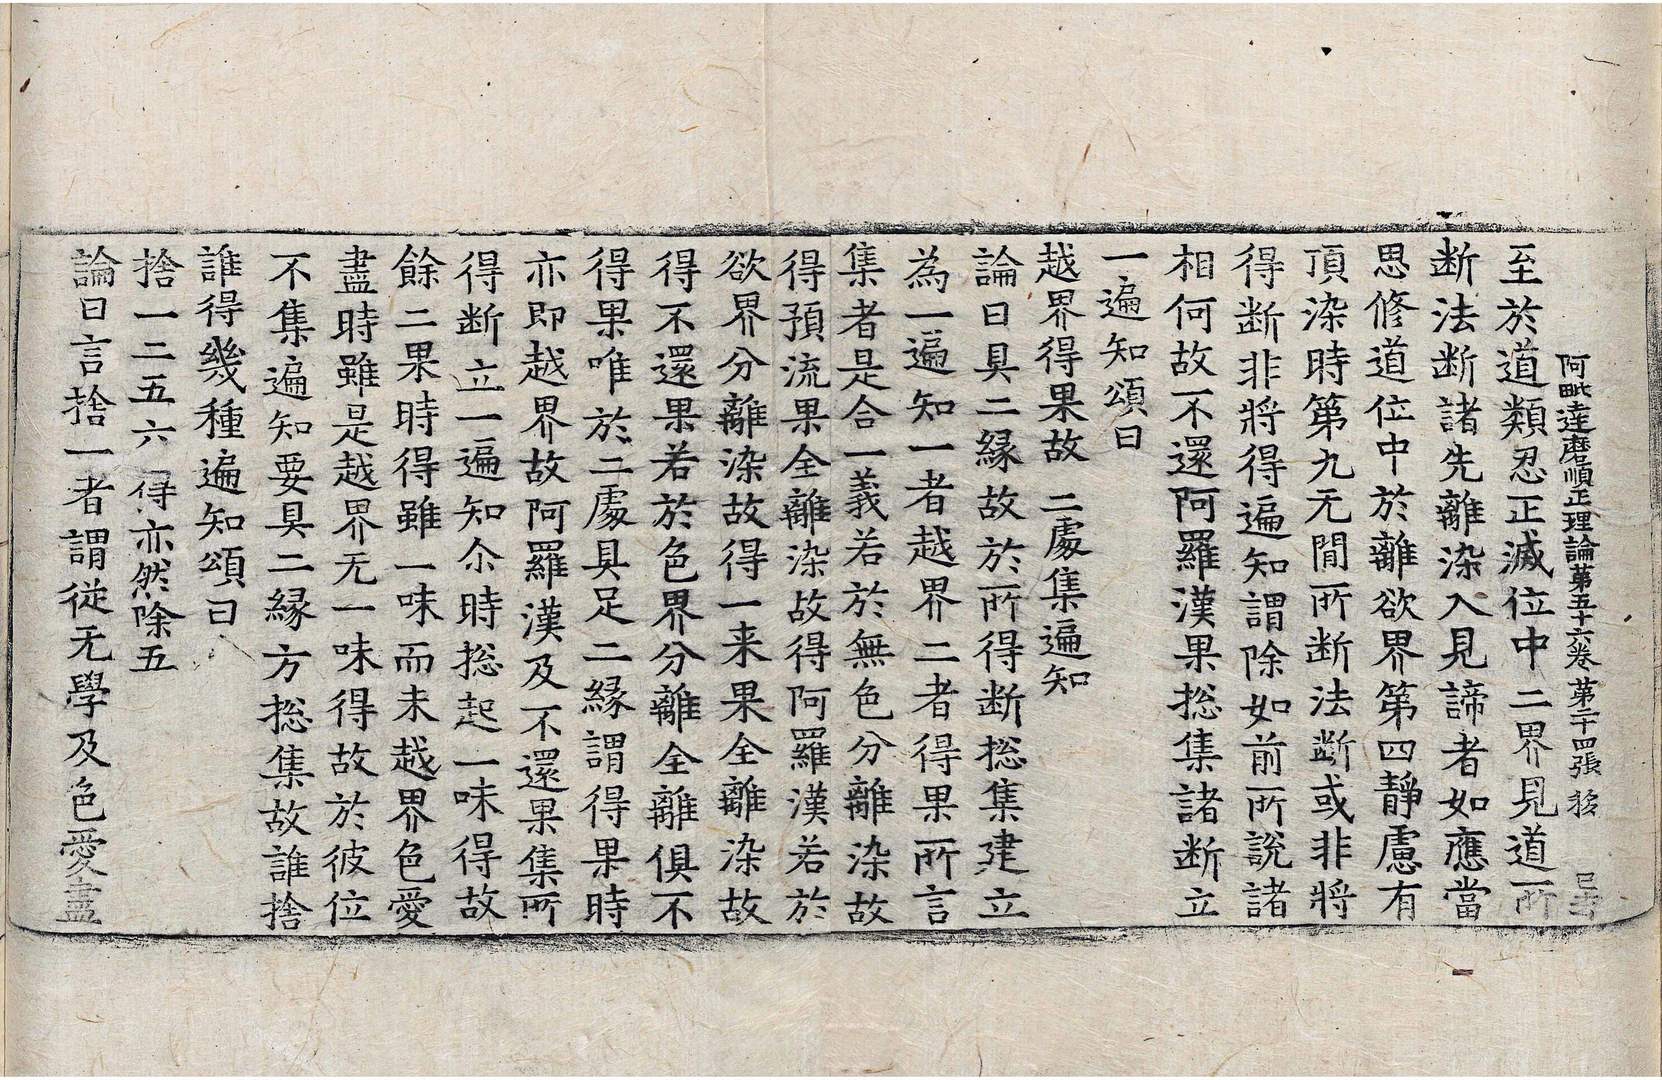 阿毗達磨順正理論第五十六卷 第二十四張 移
至於道類忍正滅位中二界見道所
断法断諸先離染入見諦者如應當
思修道位中於離欲界第四靜慮有
頂染時第九无閒所断法断或非將
得断非將得遍知謂除如前所說諸
相何故不還阿羅漢果捴集諸断立
一遍知頌曰
越界得果故 二處集遍知
論曰具二緣故於所得断捴集建立
為一遍知一者越界二者得果所言
集者是合一義若於無色分離染故
得預流果全離染故得阿羅漢若於
欲界分離染故得一来果全離染故
得不還果若於色界分離全離俱不
得果唯於二處具足二緣謂得果時
亦即越界故阿羅漢及不還果集所
得断立一遍知尒時捴起一味得故
餘二果時得雖一味而未越界色愛
盡時雖是越界无一味得故於彼位
不集遍知要具二緣方捴集故誰捨
誰得幾種遍知頌曰
捨一二五六 得亦然除五
論曰言捨一者謂從无學及色愛盡